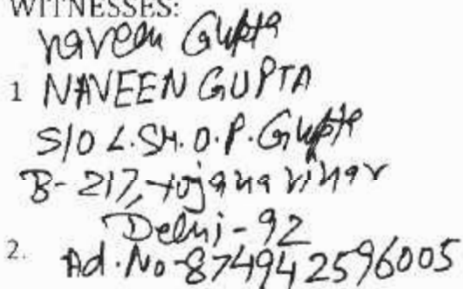 WITNESSES:
Naveen Gupta
1 NAVEEN GUPTA
S/O L.SH.O.P.Gupta
B-217, Yojana vihar
Delhi-92
2. Ad.No-874942596005